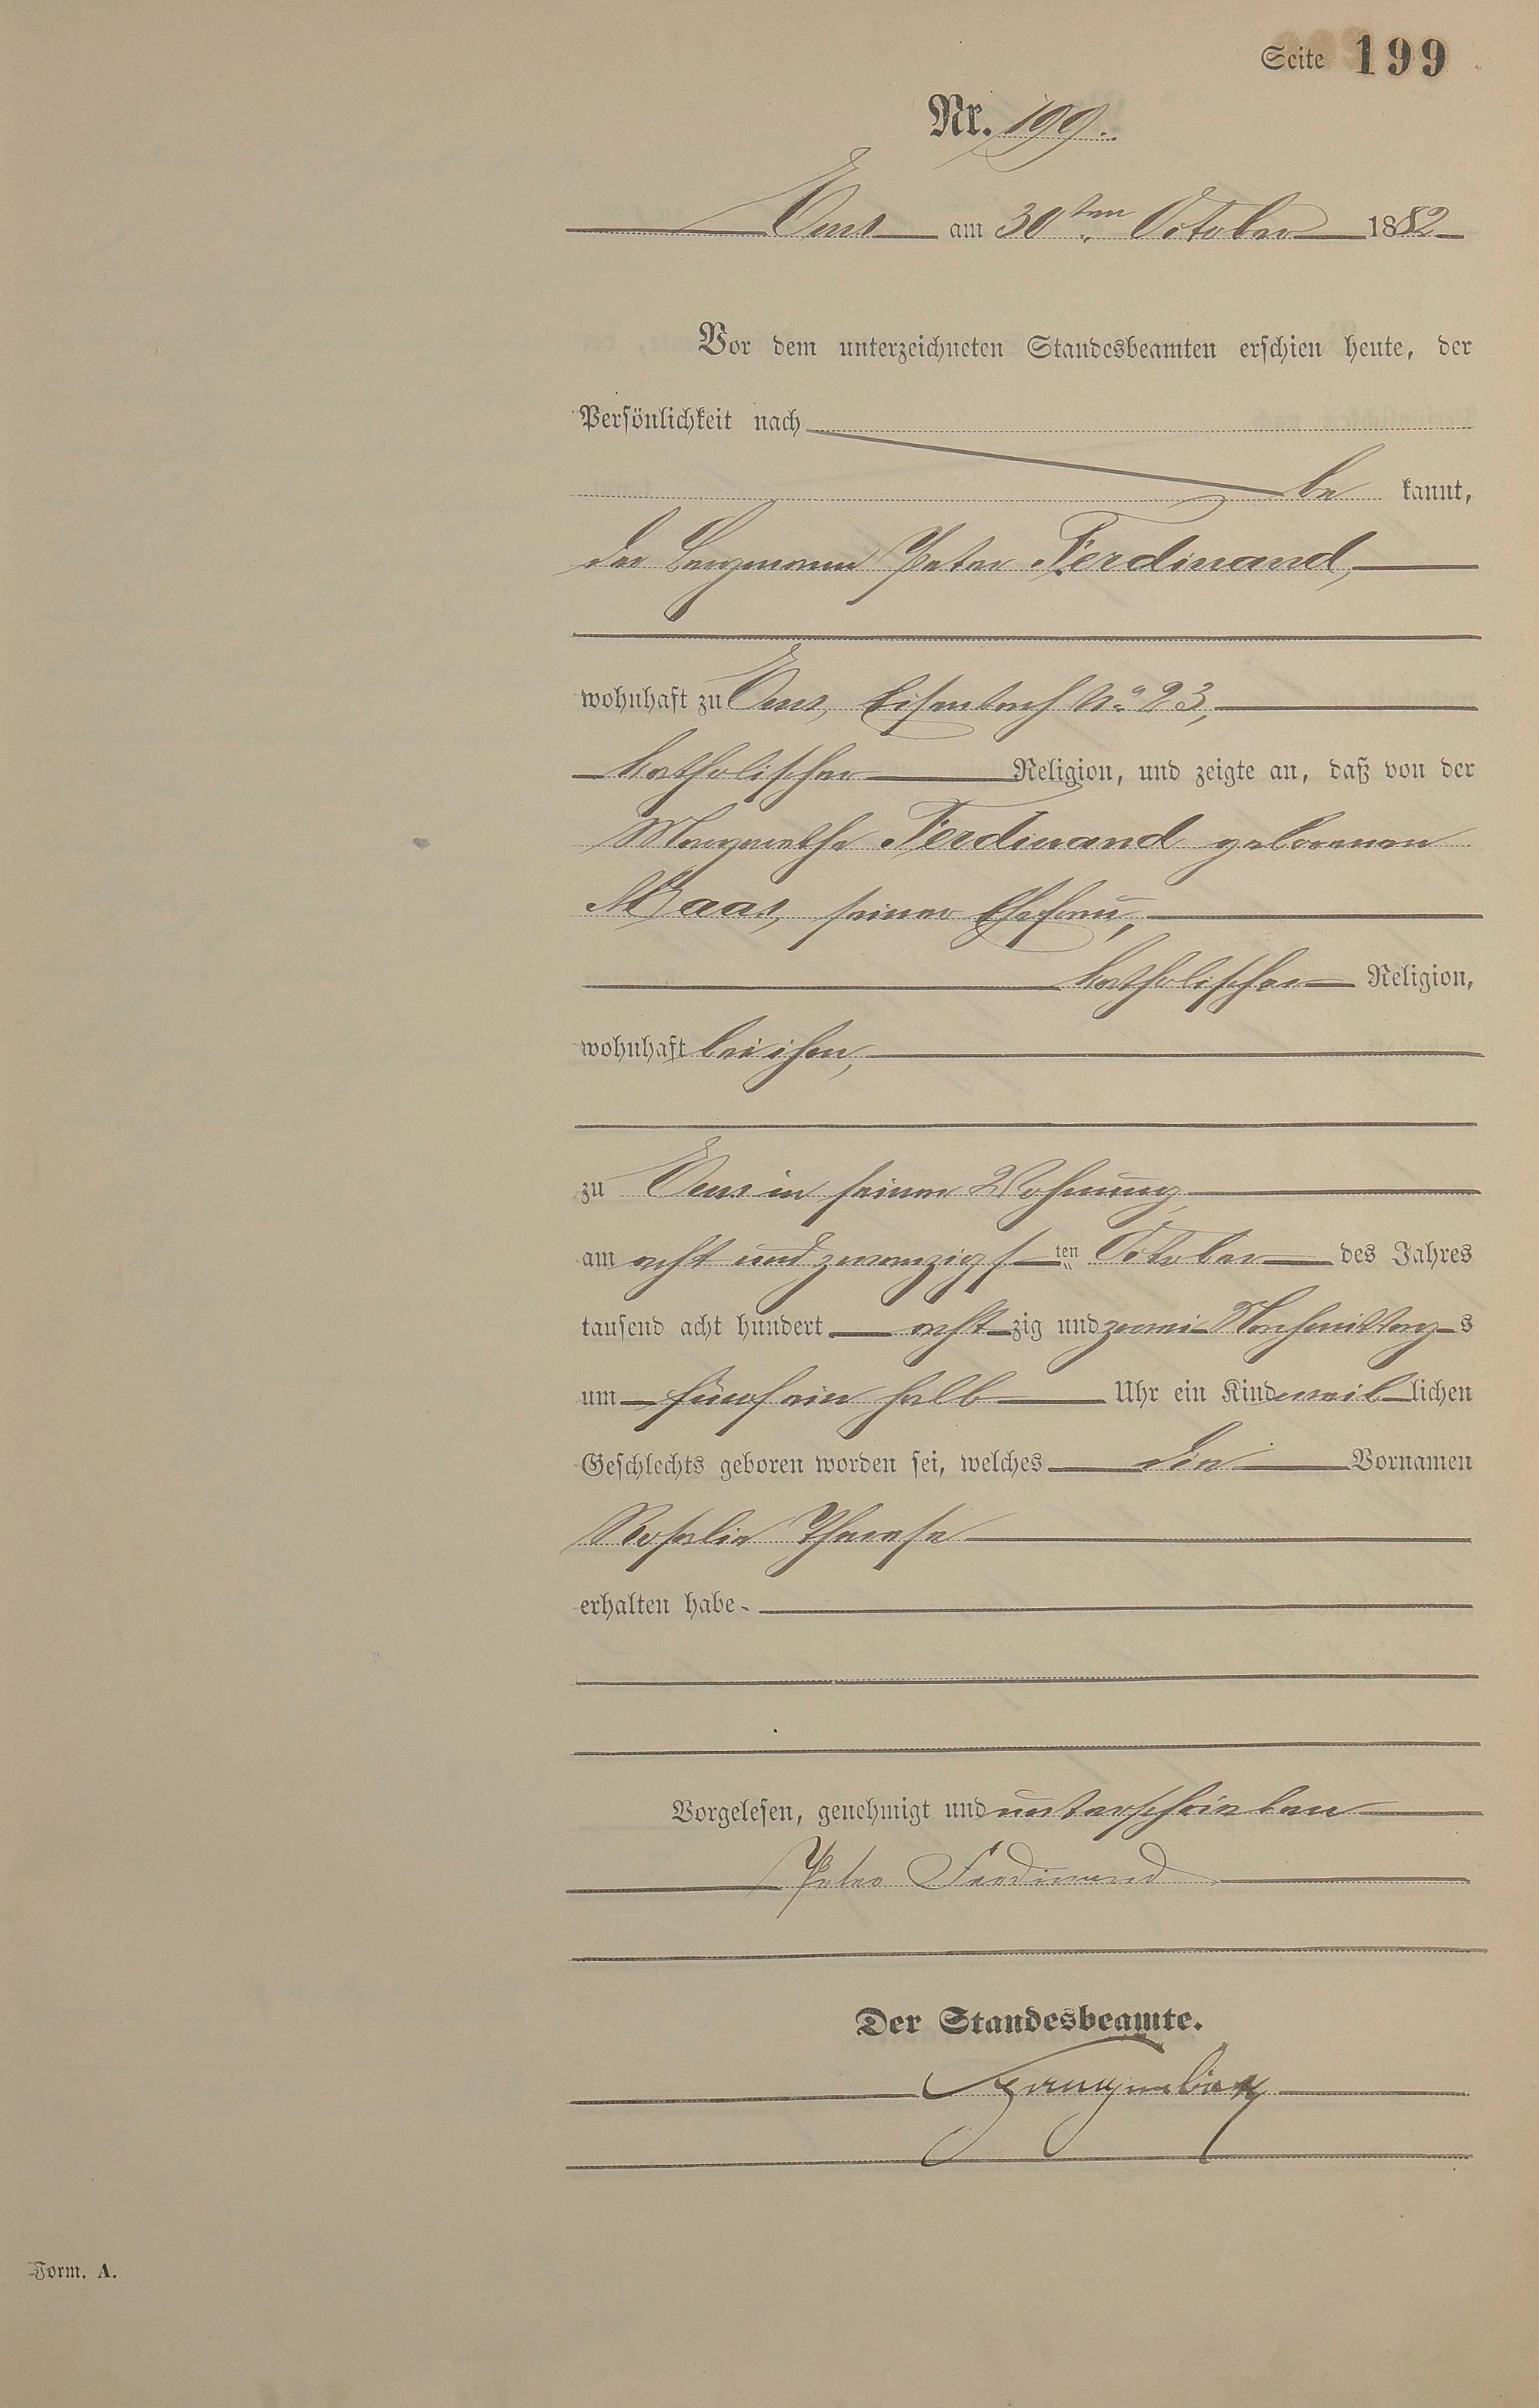 Seite 199
Nr. 199.
Ems am 30ten October 1882
Vor dem unterzeichneten Standesbeamten erschien heute, der
Persönlichkeit nach
be kannt,
der Bergmann Peter Ferdinand,
wohnhaft zu Ems, Eisenbach No. 23,
katholischer Religion, und zeigte an, daß von der
Margarethe Ferdinand geborenen
Maas, seiner Ehefrau,
katholischer Religion,
wohnhaft bei ihm,
zu Ems in seiner Wohnung,
am acht und zwanzigsten October des Jahres
tausend acht hundert achtzig und zwei Nachmittags
um fünf ein halb Uhr ein Kind weiblichen
Geschlechts geboren worden sei, welches die Vornamen
Rosalie Therese
erhalten habe.
Vorgelesen, genehmigt und unterschrieben
Peter Ferdinand
Der Standesbeamte.
Form. A.